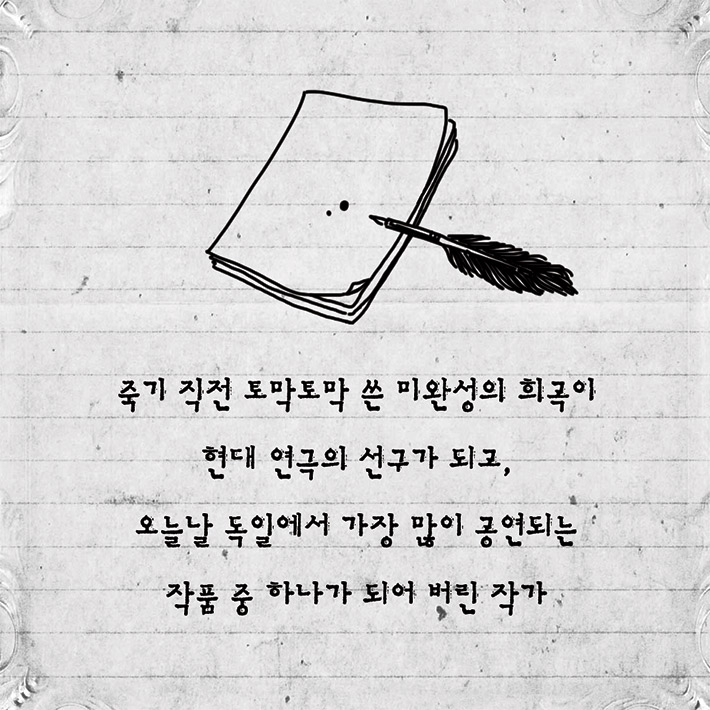 죽기 직전 토막토막 쓴 미완성의 희곡이
현대 연극의 선구가 되고,
오늘날 독일에서 가장 많이 공연되는
작품 중 하나가 되어 버린 작가